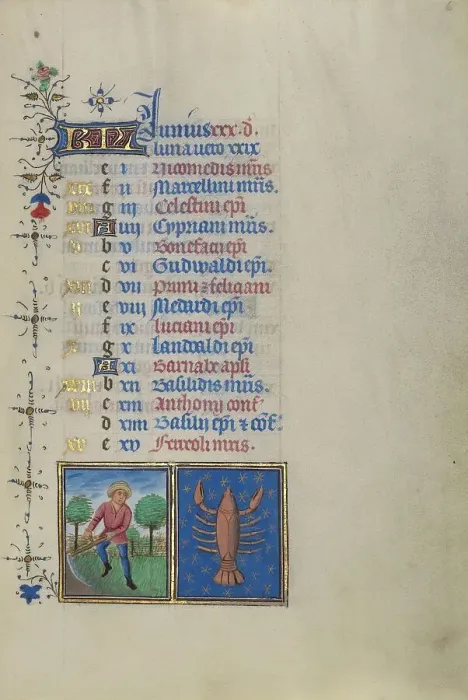 KL Iunius xxx. d.
luna uero xxix
e i Nicomedis mris
xix f ii Marcellini mris.
viii g iii Celestini epi
xvi A iiii Cypriani mris.
v b v Bonefacij epi
c vi Gudwaldi epi.
xiii d vii Primi z feliciani
ii e viii Medardi epi
f ix luciani epi
x g x Landaldi epi
A xi Barnabe apli
xviii b xii Basilidis mris.
vii c xiii Anthonij conf
d xiiii Basilij epi & cof.
xv e xv Ferreoli mris.